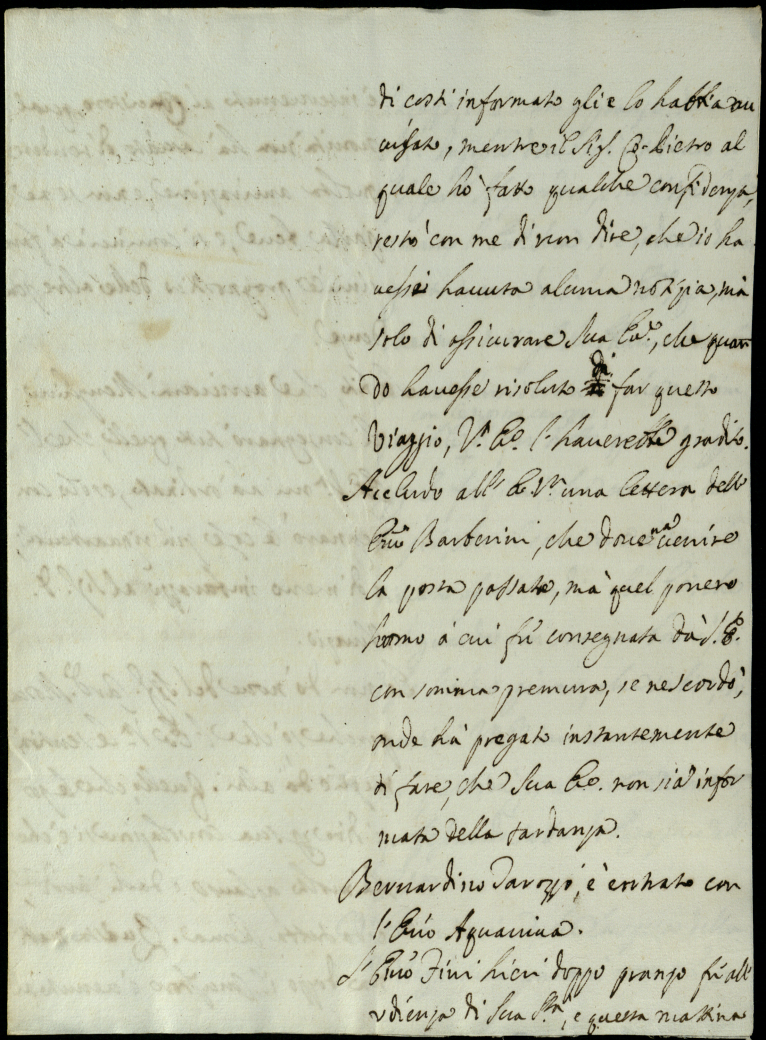 di costi informato glie lo habbia au
uisato, mentre il Sig. Pietro al
quale ho' fatto qualche confidenza,
restò con me di non dire, che io ha
uessi hauuta alcuna notizia, mà
solo di assicurare Sua Em.a, che quan
do hauesse risoluto di far questo
Viaggio, V.a E. l'hauerebbe gradito.
Accludo all' E. V.a una lettera dell'
Emo Barberini, che doueua uenire
la posta passata, mà quel pouero
homo à cui fù consegnata dà S. E.
con somma premura, se ne scordò,
onde hà pregato instantemente
di fare, che Sua E. non sia infor
mata della tardanza.
Bernardino Tarozzi, è entrato con
l'Emo Aquauiua.
L'Emo Fini hieri doppo pranzo fù all'
udienza di Sua S.tà, e questa mattina